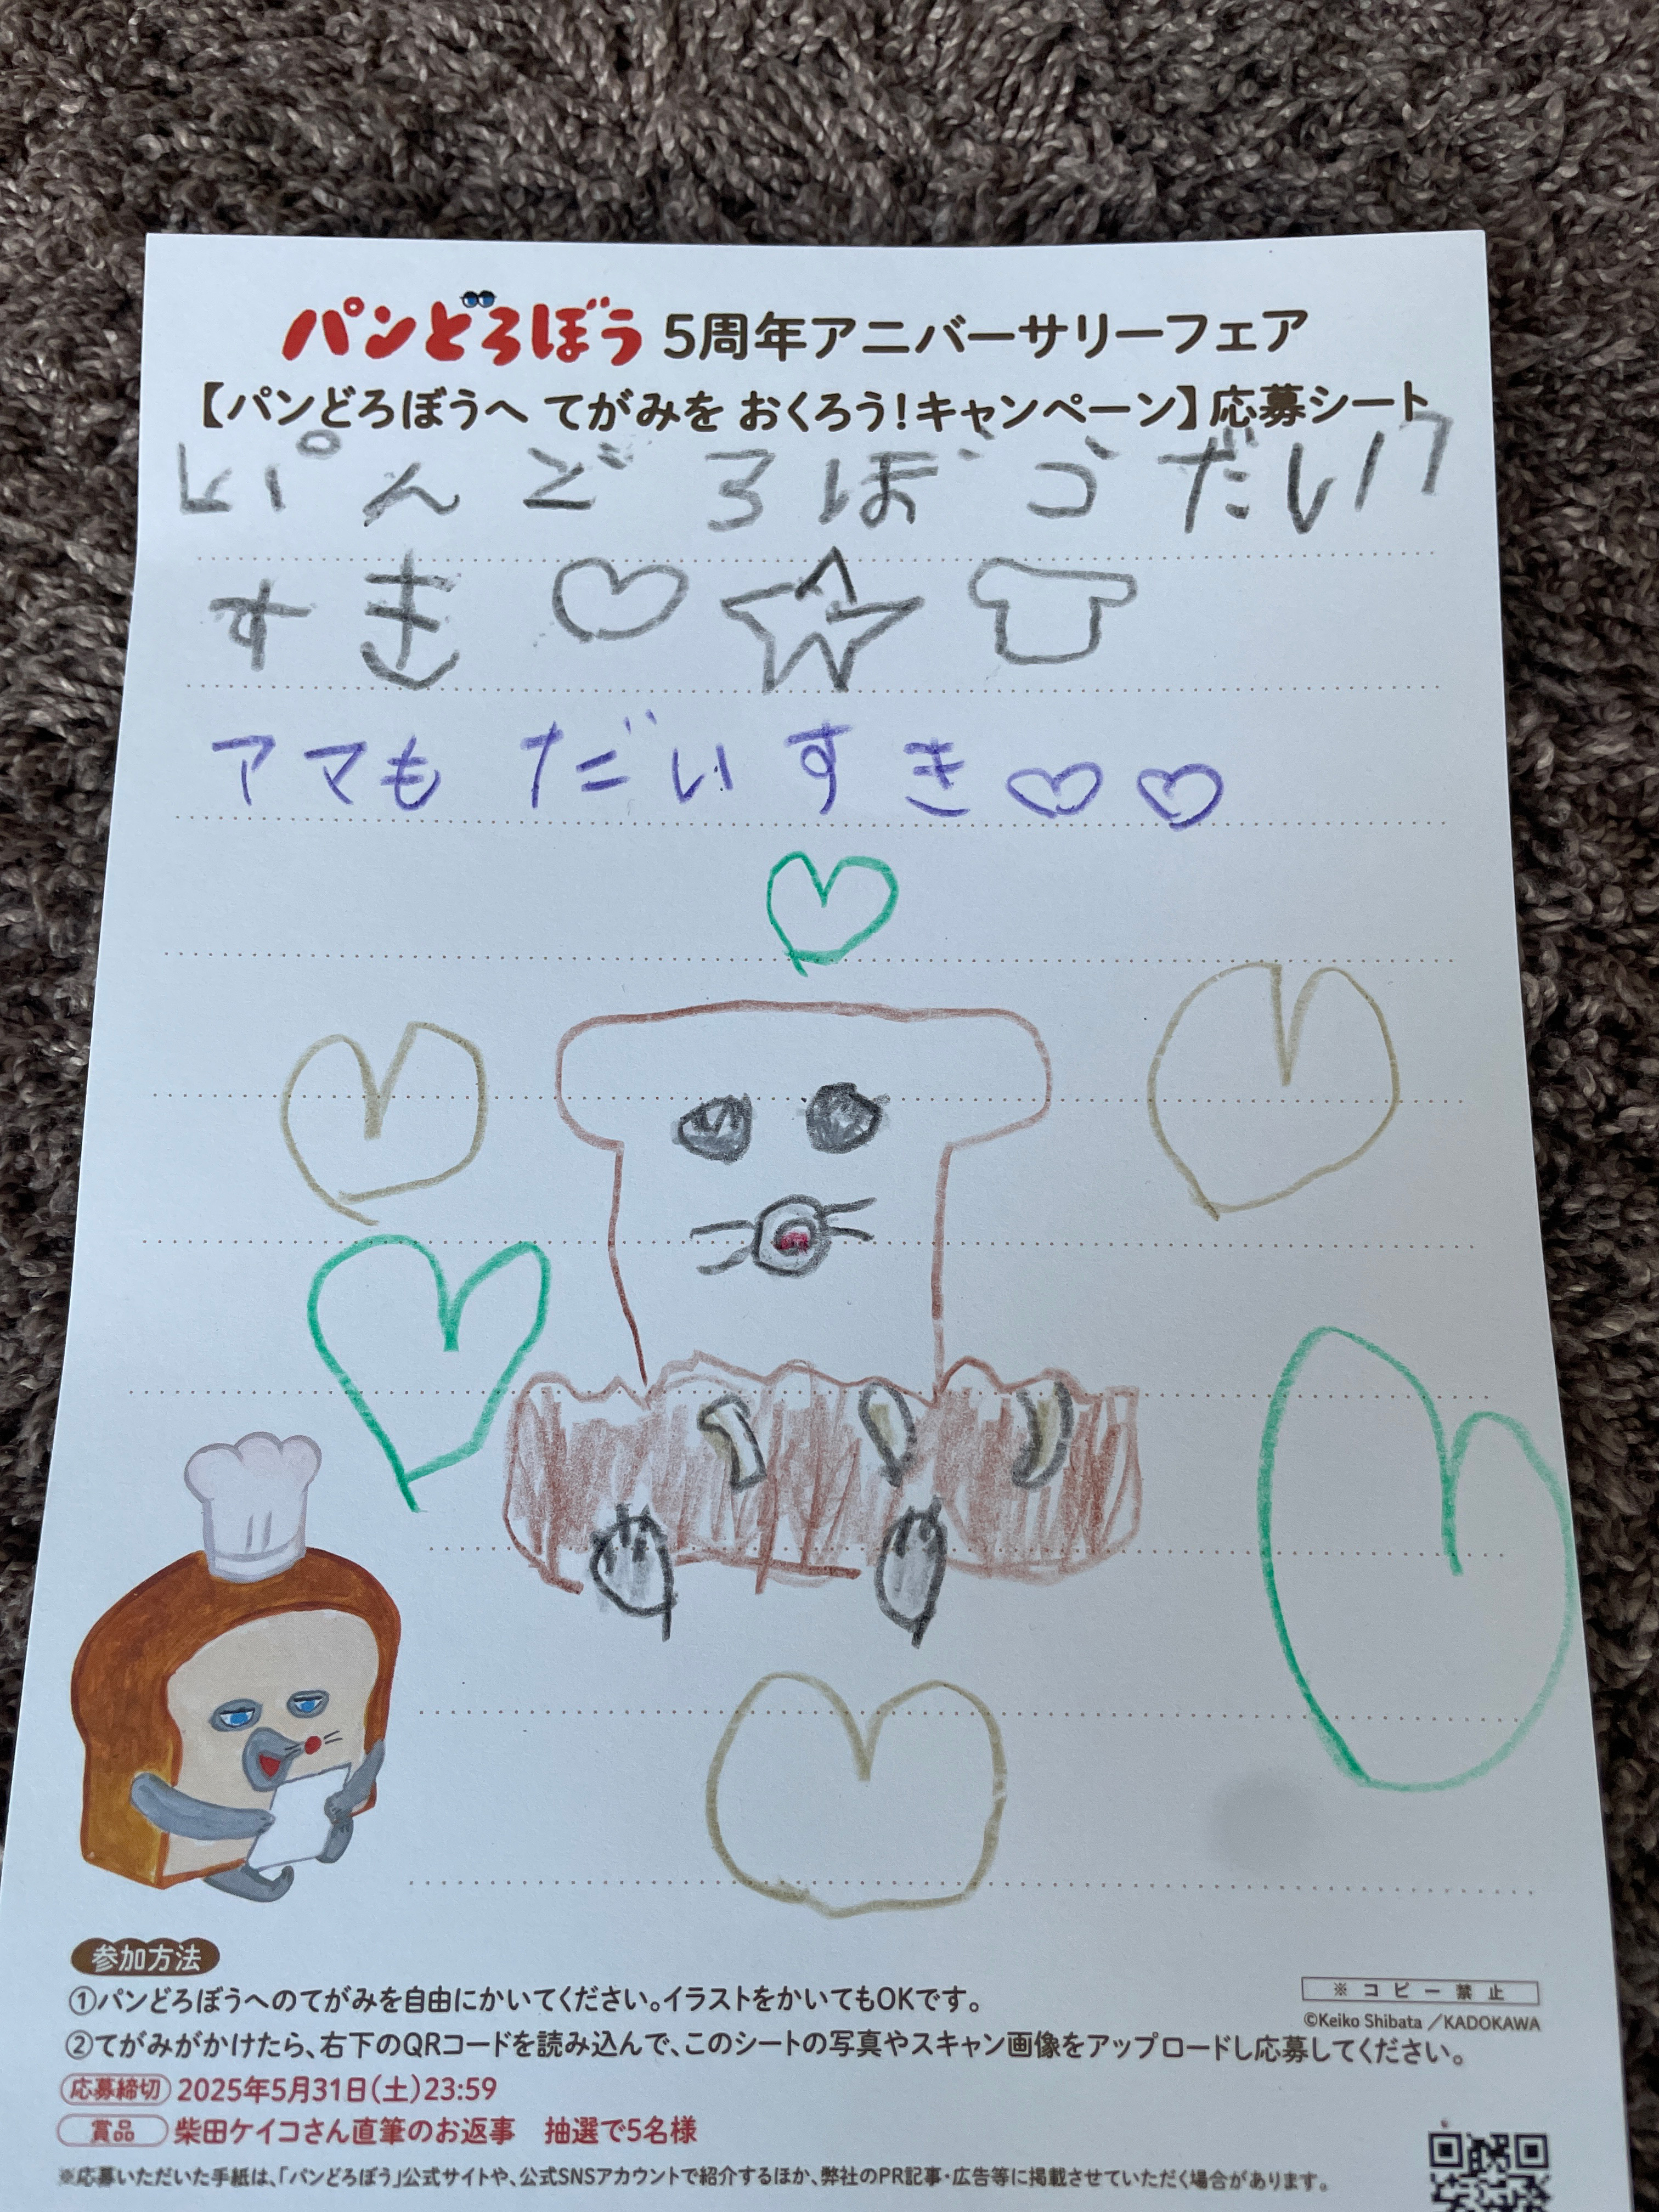 パンどろぼう 5周年アニバーサリーフェア
【パンどろぼうへ てがみを おくろう!キャンペーン】応募シート
ぱんどろぼうだい
すき♡☆
アマもだいすき♡♡
参加方法
①パンどろぼうへのてがみを自由にかいてください。イラストをかいてもOKです。
②てがみがかけたら、右下のQRコードを読み込んで、このシートの写真やスキャン画像をアップロードし応募してください。
※コピー禁止
©Keiko Shibata/KADOKAWA
応募締切 2025年5月31日(土)23:59
賞品 柴田ケイコさん直筆のお返事 抽選で5名様
※応募いただいた手紙は、「パンどろぼう」公式サイトや、公式SNSアカウントで紹介するほか、弊社のPR記事・広告等に掲載させていただく場合があります。